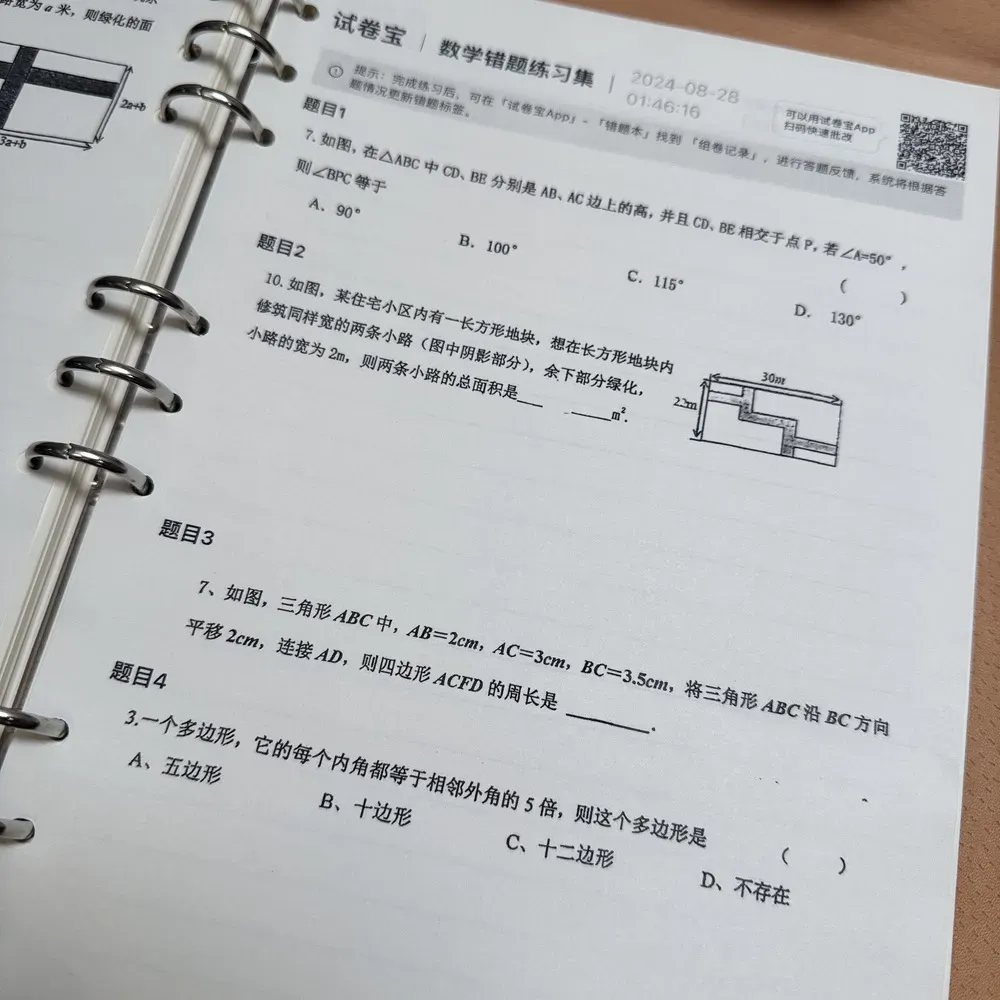 路宽为 a 米，则绿化的面
2a+b
3a+b
试卷宝 | 数学错题练习集 | 2024-08-28
01:46:16
可以用试卷宝App
扫码快速批改
提示：完成练习后，可在「试卷宝App」-「错题本」找到「组卷记录」，进行答题反馈，系统将根据答
题情况更新错题标签。
题目1
7. 如图，在△ABC 中 CD、BE 分别是 AB、AC 边上的高，并且 CD、BE 相交于点 P，若∠A=50°，
则∠BPC 等于 （ ）
A. 90° B. 100° C. 115° D. 130°
题目2
10. 如图，某住宅小区内有一长方形地块，想在长方形地块内
修筑同样宽的两条小路（图中阴影部分），余下部分绿化，
小路的宽为 2m，则两条小路的总面积是___ ____m².
30m
22m
题目3
7、如图，三角形 ABC 中，AB＝2cm，AC＝3cm，BC＝3.5cm，将三角形 ABC 沿 BC 方向
平移 2cm，连接 AD，则四边形 ACFD 的周长是 ________.
题目4
3.一个多边形，它的每个内角都等于相邻外角的 5 倍，则这个多边形是 （ ）
A、五边形 B、十边形 C、十二边形 D、不存在